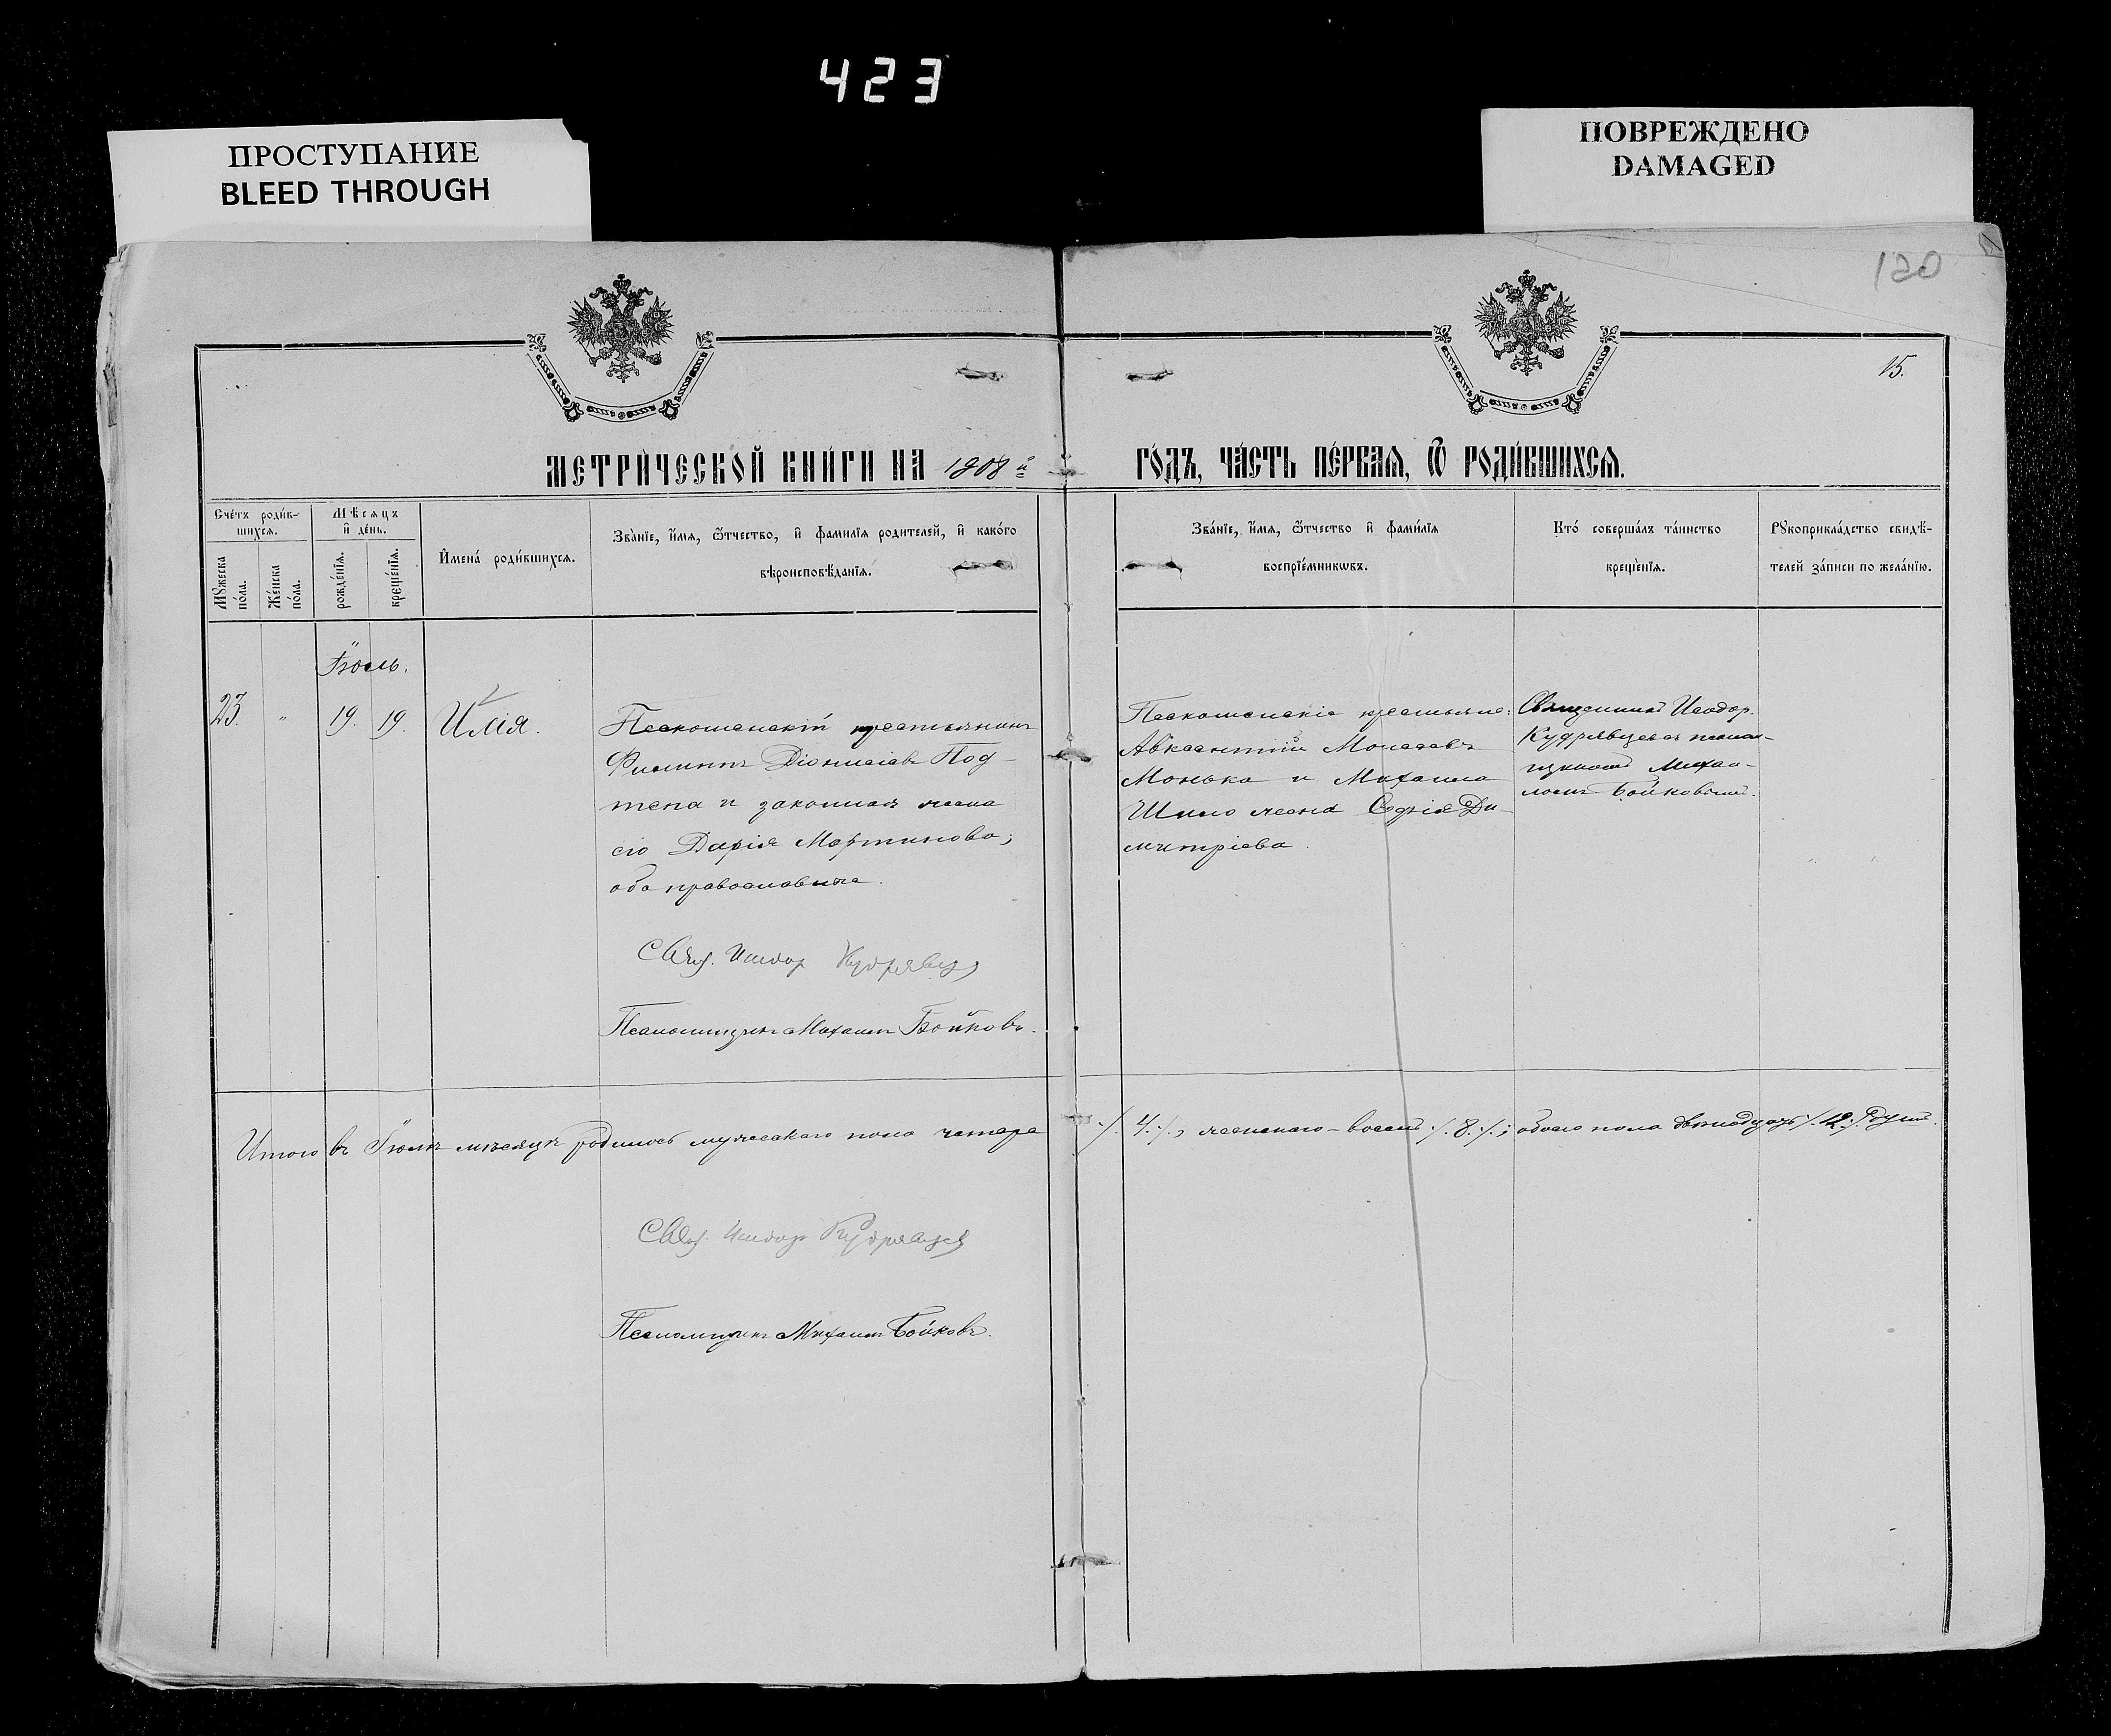 423
ПРОСТУПАНИЕ
BLEED THROUGH
ПОВРЕЖДЕНО
DAMAGED
120
15.
МЕТРИ́ЧЕСКОЙ КНИ́ГИ НА 1908й
ГО́ДЪ, ЧА́СТЬ ПЕ́РВАѦ, Ѿ РОДИ́ВШИХСѦ.
Сче́тъ роди́в-
шихсѧ.
Мꙋ́жеска по́ла.
Же́нска по́ла.
Мѣ́сѧцъ
и҆ де́нь.
рожде́нїѧ.
креще́нїѧ.
И҆мена̀ роди́вшихсѧ.
Зва́нїе, и҆́мѧ, ѻ҆́тчество, и҆ фамилїѧ родителей, и҆ како́го
вѣроисповѣ́данїѧ.
Зва́нїе, и҆́мѧ, ѻ҆́тчество и҆ фами́лїѧ
воспрїе́мникѡвъ.
Кто̀ соверша́лъ та́инство
креще́нїѧ.
Рꙋкоприкла́дство свидѣ́-
телей за́писи по жела́нїю.
Іюль.
23. " 19. 19. Илія.
Пескошенскій крестьянинъ
Филиппъ Діонисіевъ Под-
тепа и законная жена
его Дарія Мартинова;
оба православные.
Свящ. Исидор Кудрявцев
Псаломщикъ Михаилъ Бойковъ.
Пескошенскіе крестьяне:
Авксентій Моисеевъ
Монька и Михаила
Шило жена Софія Ди-
митріева.
Священникъ Исидор.
Кудрявцевъ съ псалом-
щикомъ Михаи-
ломъ Бойковымъ.
Итого въ Іюлѣ мѣсяцѣ родилось мужескаго пола четыре ./. 4 ./., женскаго – восемь ./. 8 ./.; обоего пола двѣнадцать ./. 12 ./. душъ.
Свящ. Исидор Кудрявцев
Псаломщикъ Михаилъ Бойковъ.